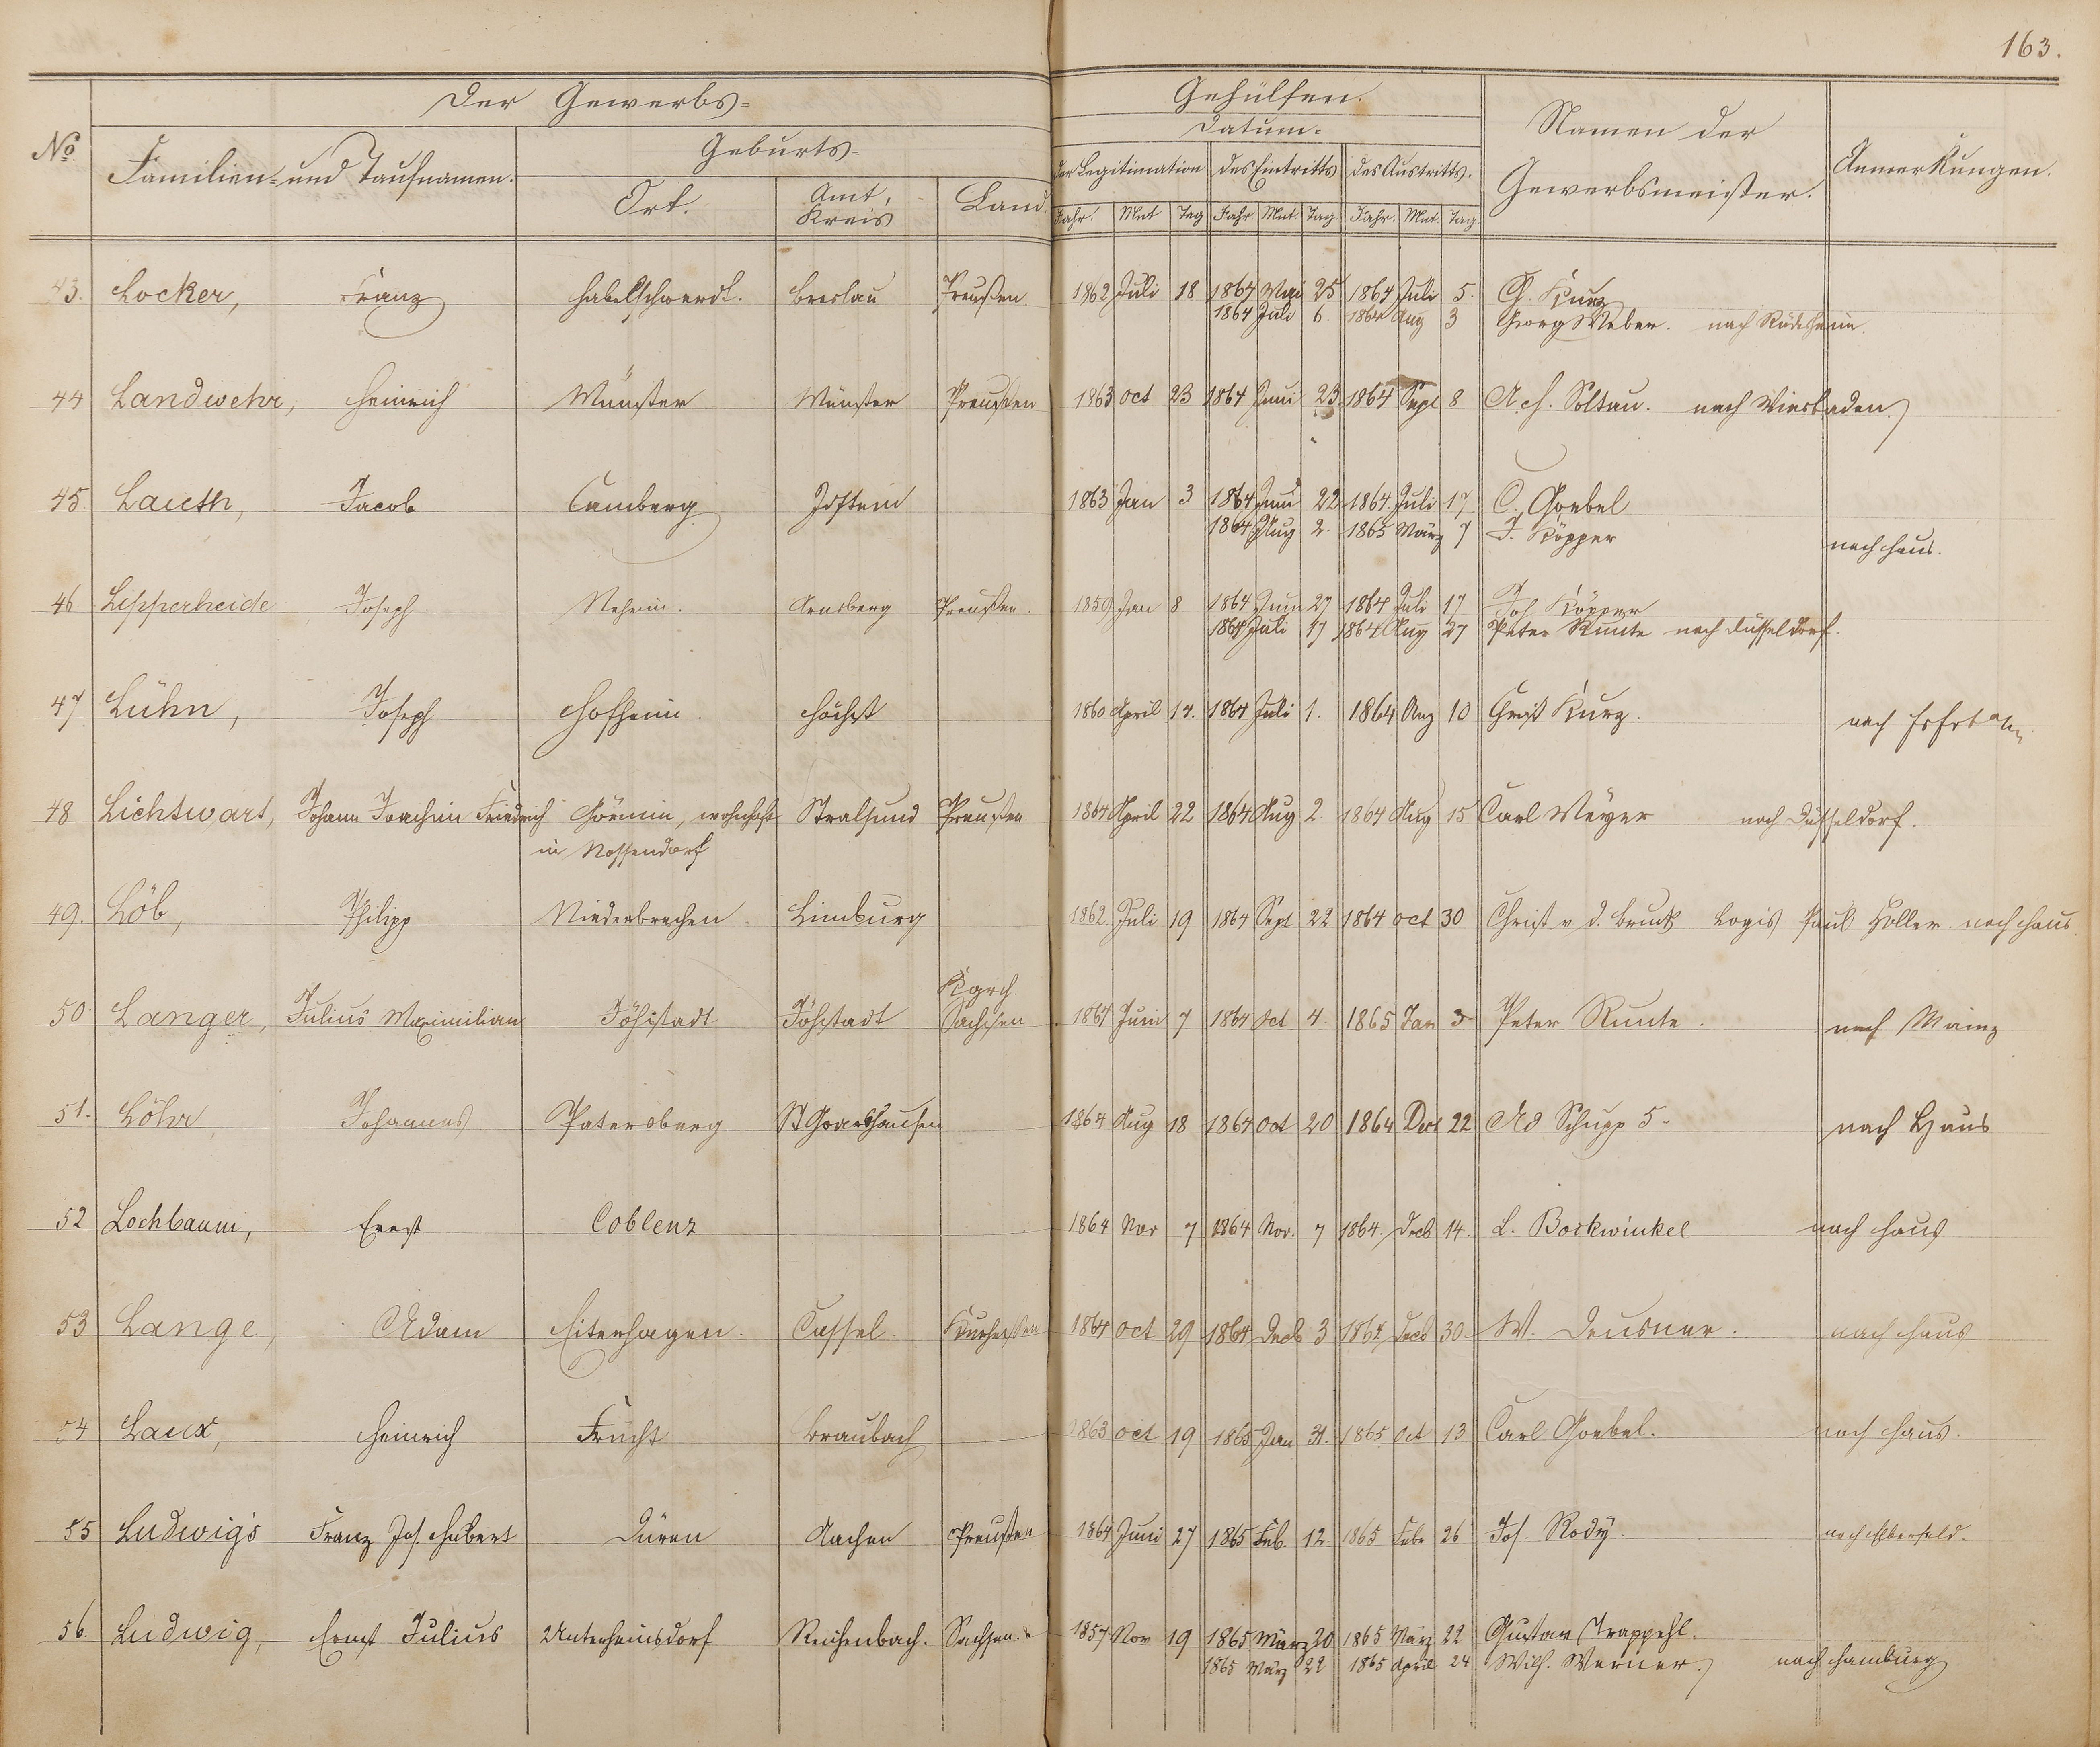 163.
Der Gewerbs= Gehülfen.
No
Familien= und Taufnamen.
Geburts-
Ort.
Amt, Kreis
Land
Datum.
der Legitimation des Eintritts des Austritts.
Jahr. Mnt Tag Jahr Mnt Tag Jahr. Mnt. Tag
Namen der Gewerbsmeister.
Anmerkungen.
43. Locker, Franz Habelschwerdt. Breslau Preußen 1862 Juli 18 1864 Mai 25 1864 Juli 5. G. Kurz
1864 Juli 6. 1864 Aug 3 Georg Weber. nach Rüdesheim.
44 Landwehr, Heinrich Münster Münster Preußen 1863 oct 23 1864 Juni 23. 1864 Sept 8 A. H. Soltau. nach Wiesbaden
45. Laueth, Jacob Camberg Idstein 1863 Jan 3 1864 Juni 22 1864. Juli 17 C. Goebel
1864 Aug 2. 1865 März 7 J. Köpper nach Haus.
46 Lipperheide Joseph Neheim. Arnsberg Preußen. 1859 Jan 8 1864 Juni 27 1864 Juli 17 Joh Köpper
1864 Juli 17 1864 Aug 27 Peter Runte nach Düsseldorf.
47 Lühn, Joseph Hofheim. Höchst 1860 April 14. 1864 Juli 1. 1864 Aug 10 Christ Kurz. nach Frfrt a/m
48 Lichtwart, Johann Joachim Friedrich Görmin, wohnhaft Stralsund Preußen 1864 April 22 1864 Aug 2. 1864 Aug 15 Carl Meyer nach Düsseldorf.
in Nossendorf
49. Löb, Philipp Niederbrechen Limburg 1862. Juli 19 1864 Sept 22 1864 oct 30 Christ v. d. Bruck Logis Paul Holler. nach Haus
50 Langer, Julius Maximilian Jöhstadt Jöhstadt Kgrch. Sachsen 1864 Juni 7 1864 Oct 4. 1865 Jan 3 Peter Runte. nach Mainz
51. Löhr Johannes Patersberg St Goarshausen 1864 Aug 18 1864 Oct 20 1864 Dec 22 Ad Schupp 5- nach Haus
52 Lochbaum, Ernst Coblenz 1864 Nov 7 1864 Nov. 7 1864. Decb 14. L. Bockwinkel nach Haus
53 Lange, Adam Eiterhagen. Cassel. Kurhessen 1864 oct 29 1864 Decb 3 1864 Decb 30 W. Deusner. nach Haus
54 Laux, Heinrich Frücht Braubach 1863 oct 19 1865 Jan 31. 1865 Oct 13 Carl Goebel. nach Haus.
55 Ludwigs Franz Jos. Hubert Düren Aachen Preußen 1864 Juni 27 1865 Feb. 12. 1865 Febr 26 Jos. Rody. nach Elberfeld.
56. Ludwig, Ernst Julius Unterheinsdorf Reichenbach. Sachsen. 1857 Nov 19 1865 März 20 1865 März 22 Gustav Trappehl.
1865 März 22 1865 April 24 Wilh. Werner. nach Hamburg